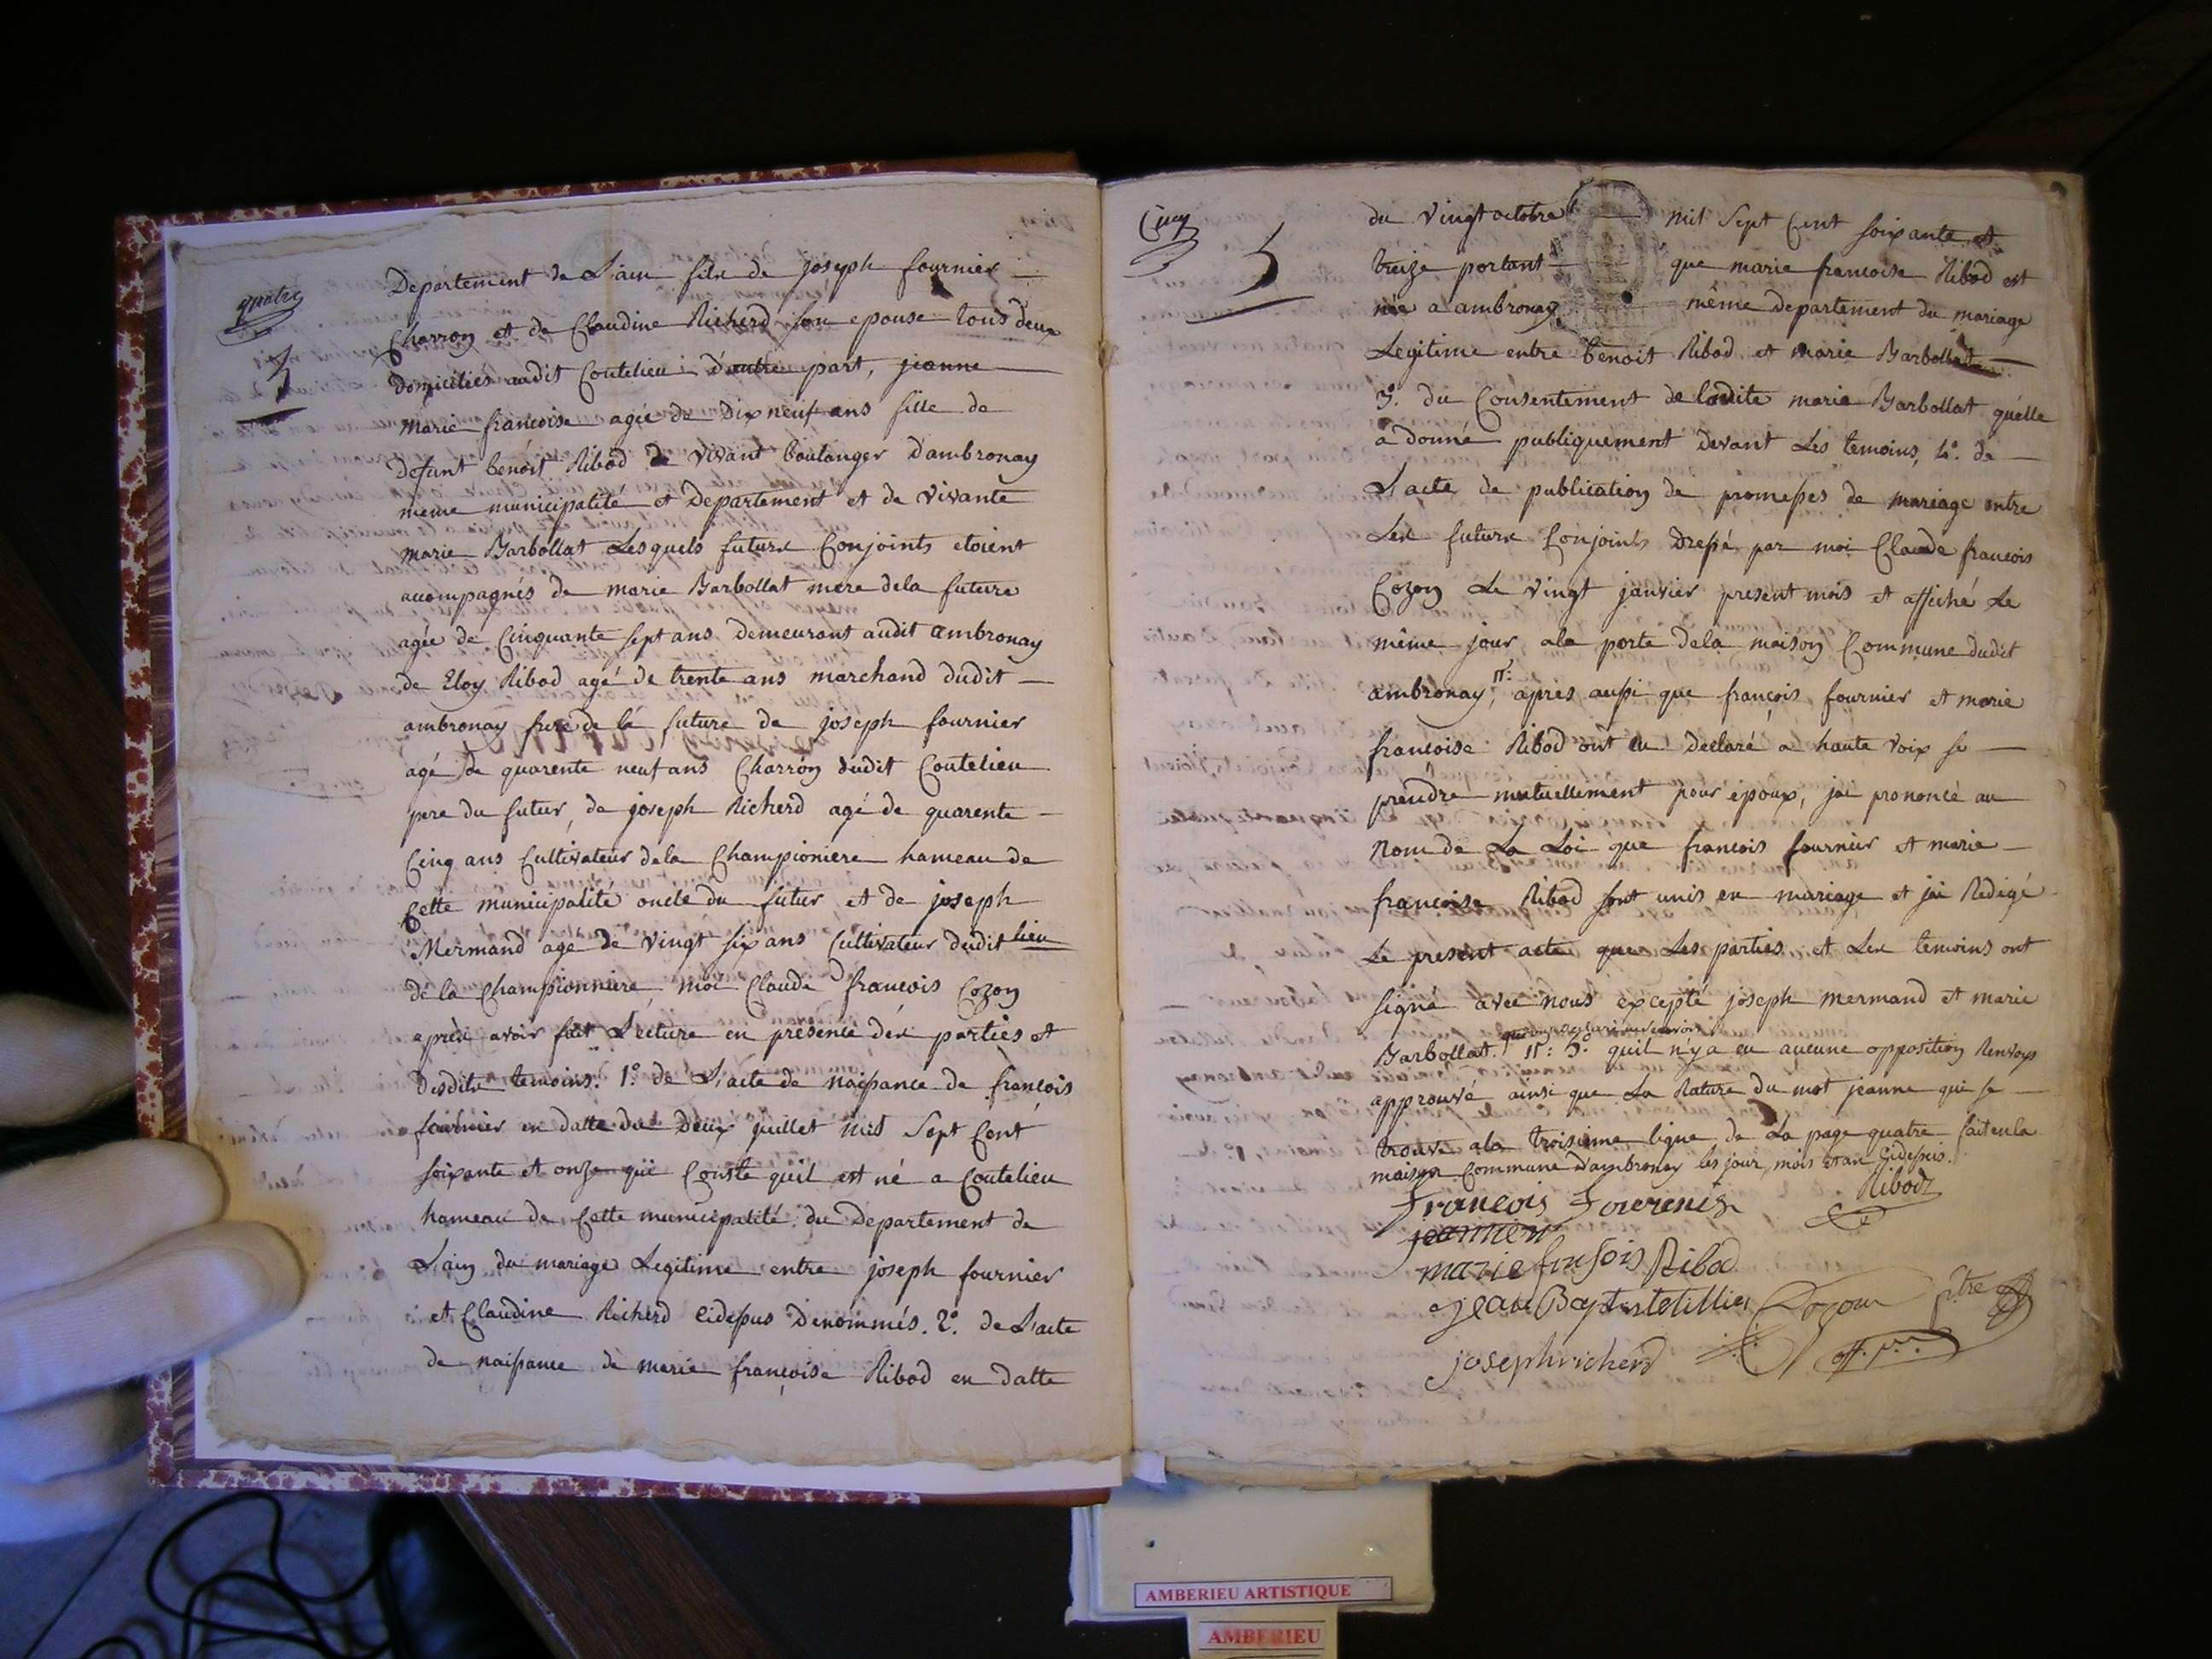 quatre
Departement de L'ain fils de joseph fournier
Charron et de Claudine Richerd son epouse tous deux
Domiciliés audit Coutelieu d'autre part, jeanne
marie françoise agée de Dix neuf ans fille de
defunt benoit Ribod de vivant boulanger D'ambronay
meme municipalité et Departement et de vivante
marie Barbollat Lesquels futurs Conjoints etoient
acompagnés de marie Barbollat mere dela future
agée de Cinquante sept ans demeurant audit ambronay
de Eloy Ribod agé de trente ans marchand dudit
ambronay frere de la future de joseph fournier
agé de quarente neuf ans Charron dudit Coutelieu
pere du futur, de joseph Richerd agé de quarente
Cinq ans Cultivateur dela Championiere hameau de
Cette municipalité oncle du futur et de joseph
Mermand age de vingt six ans Cultivateur dudit lieu
de la Championniere, moi Claude francois Cozon
après avoir fait Lecture en presence des parties et
desdits temoins. 1° de L'acte de naissance de françois
fournier en datte du Deux juillet mil Sept Cent
soixante et onze qui Conste quil est né a Coutelieu
hameau de Cette municipalité du Departement de
L'ain du mariage Legitime entre joseph fournier
et Claudine Richerd cidessus Denommés. 2°. de L'acte
de naissance de marie françoise Ribod en datte
Cinq
5
du vingt octobre mil Sept Cent soixante et
treize portant que marie francoise Ribod est
née a ambronay même departement du mariage
Legitime entre benoit Ribod et marie Barbollat
3°. du Consentement de ladite marie Barbollat quelle
a donné publiquement devant Les temoins, 4°. de
L'acte de publication de promesses de mariage entre
Les futurs Conjoints Dressé par moi Claude francois
Cozon Le vingt janvier present mois et affiché Le
même jour ala porte dela maison Commune dudit
ambronay, après aussi que françois fournier et marie
francoise Ribod ont eu declaré a haute voix se
prendre mutuellement pour epoux, jai prononcé au
nom de La Loi que francois fournier et marie
françoise Ribod sont unis en mariage et jai Redigé
Le present acte que Les parties et Les temoins ont
signé avec nous excepté joseph mermand et marie
Barbollat. 5° quil n'y a eu aucune opposition Renvoys
approuvé ainsi que La Rature du mot jeanne qui se
trouve ala troisieme ligne de La page quatre fait en la
maison Commune d'ambronay les jour, mois et an Cidessus.
Francois Fournier Ribod
marie fransois Ribod
jean Baptiste tillier Cozon ptre
joseph richerd off. p.
AMBERIEU ARTISTIQUE
AMBERIEU